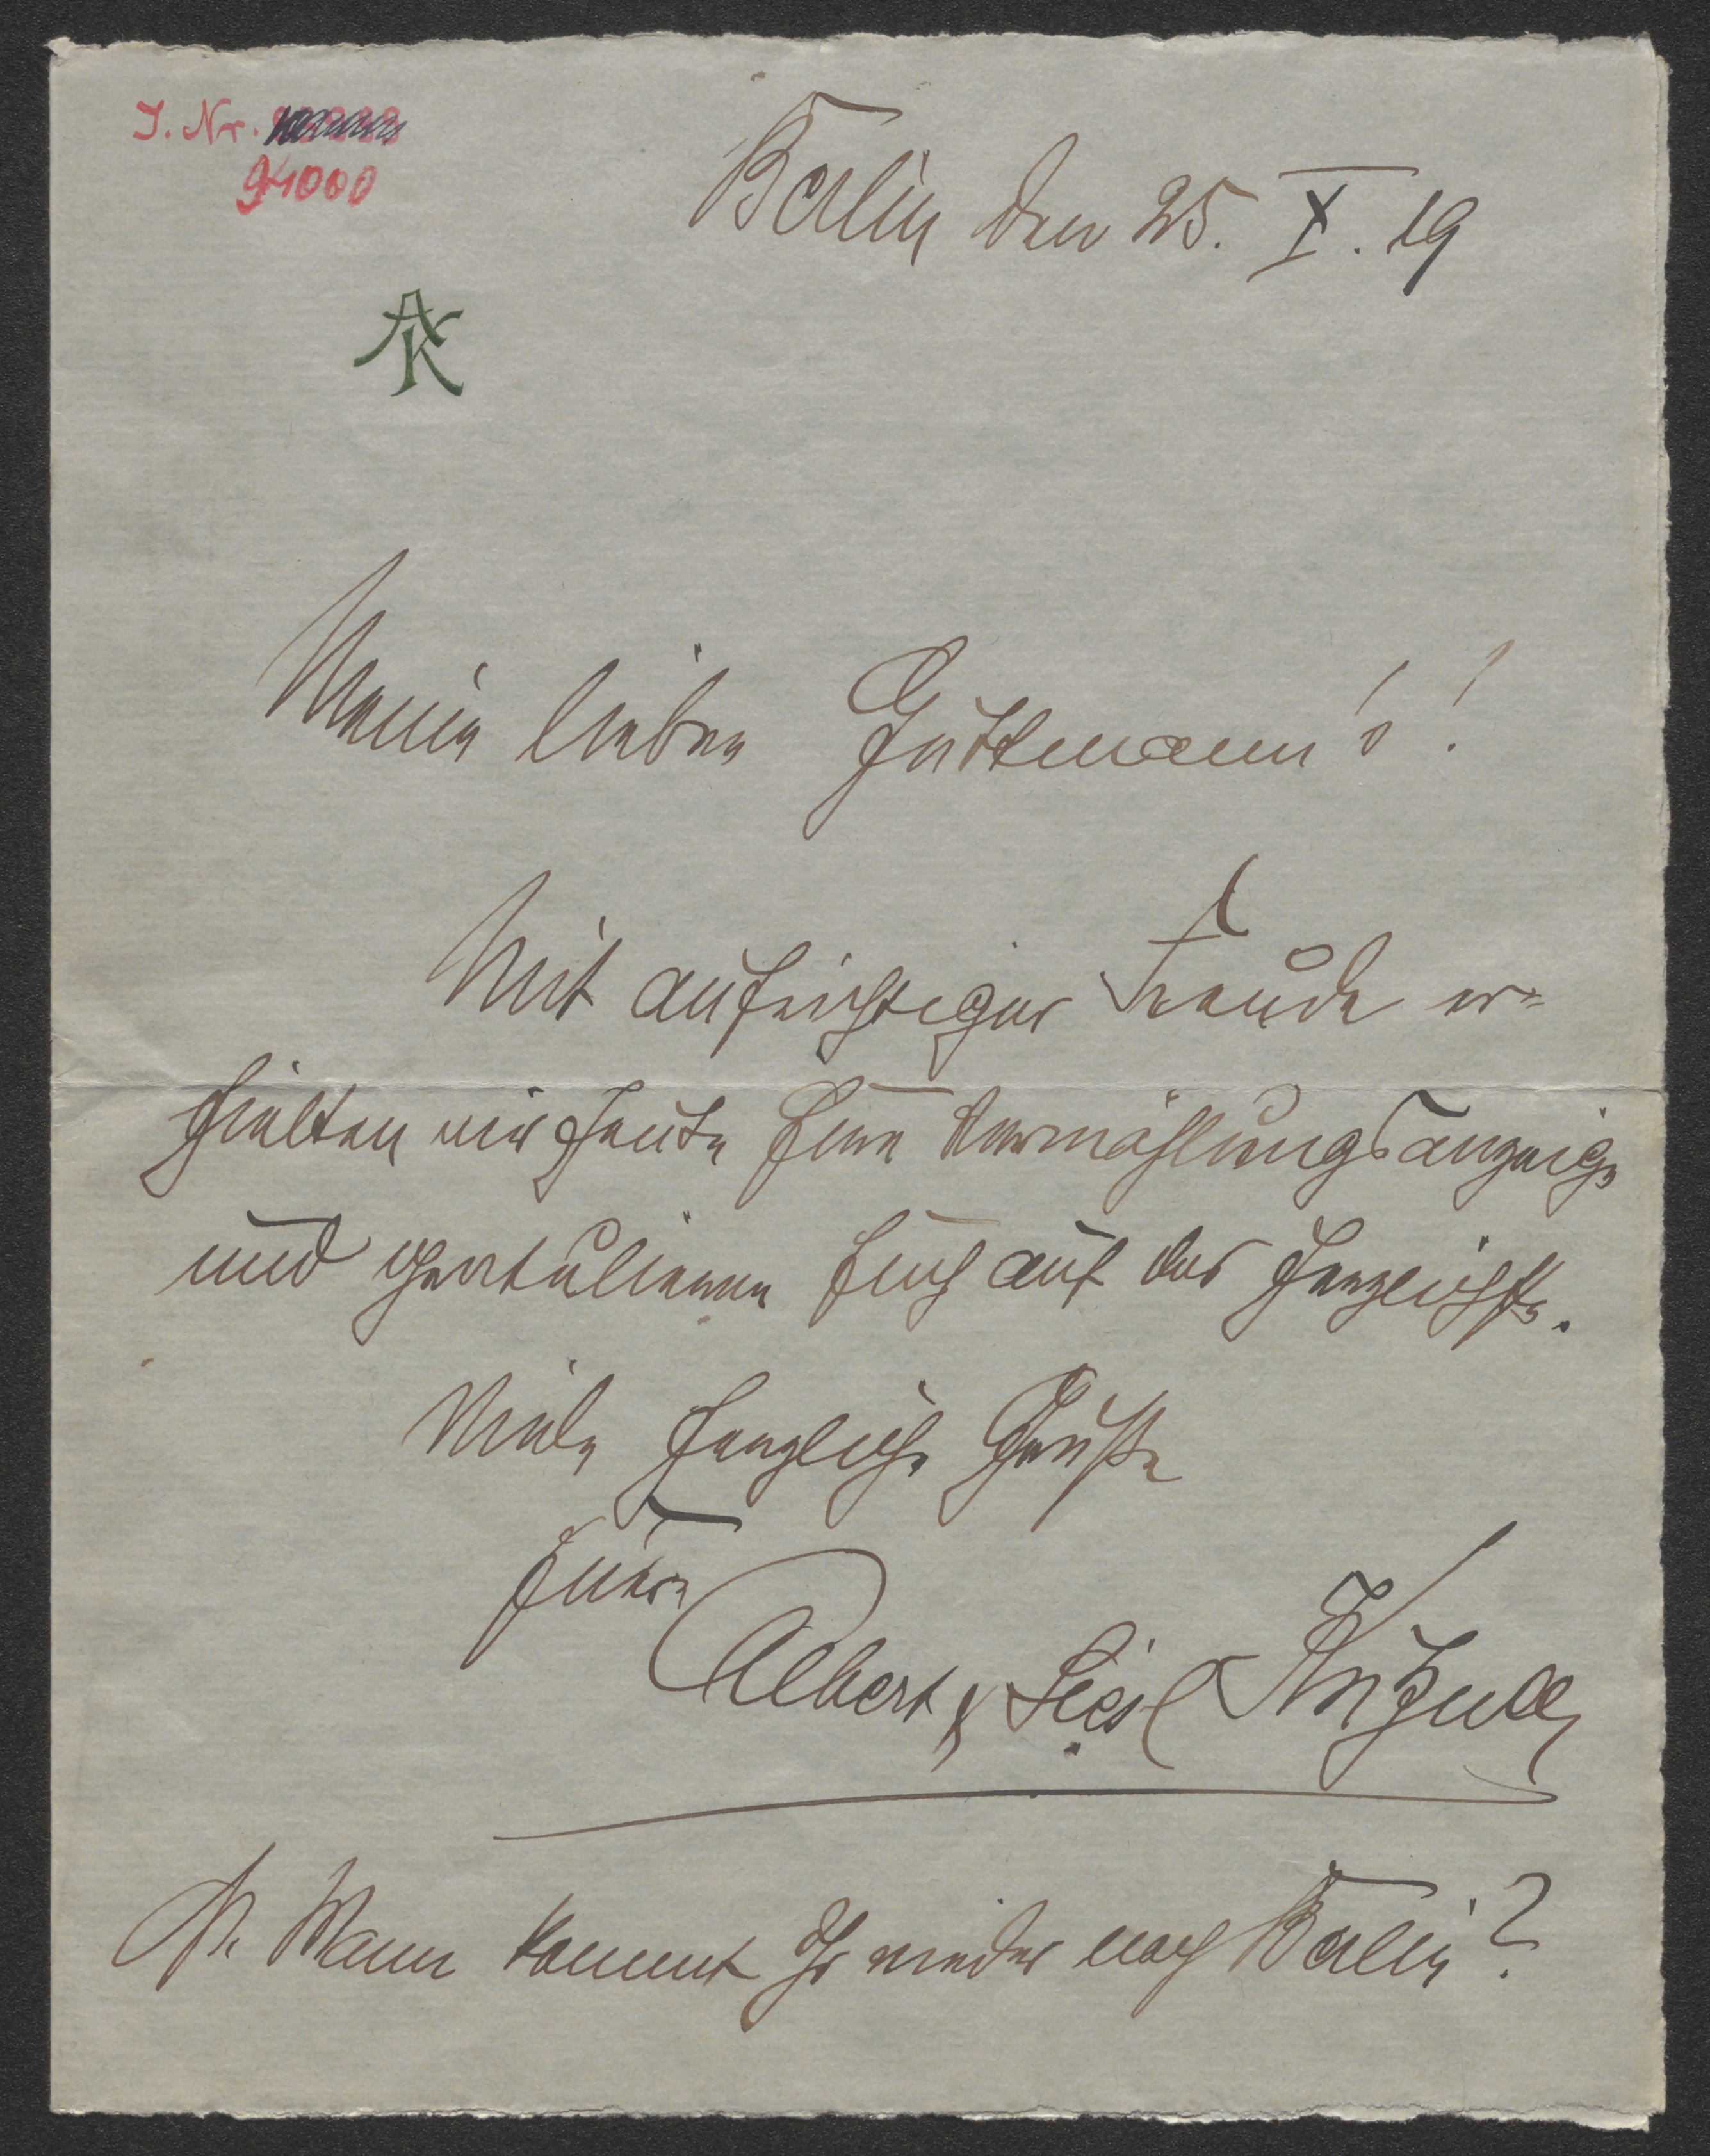 J. Nr.
94000
Berlin den 25. X. 19
AK
Meine lieben Guttmann's!
Mit aufrichtiger Freude er=
hielten wir heute Eure Vermählungsanzeige
und gratulieren Euch auf das herzlichste.
Viele herzliche Grüße
Eure
Albert & Liesl Kutzner
N. Wann kommt Ihr wieder nach Berlin?